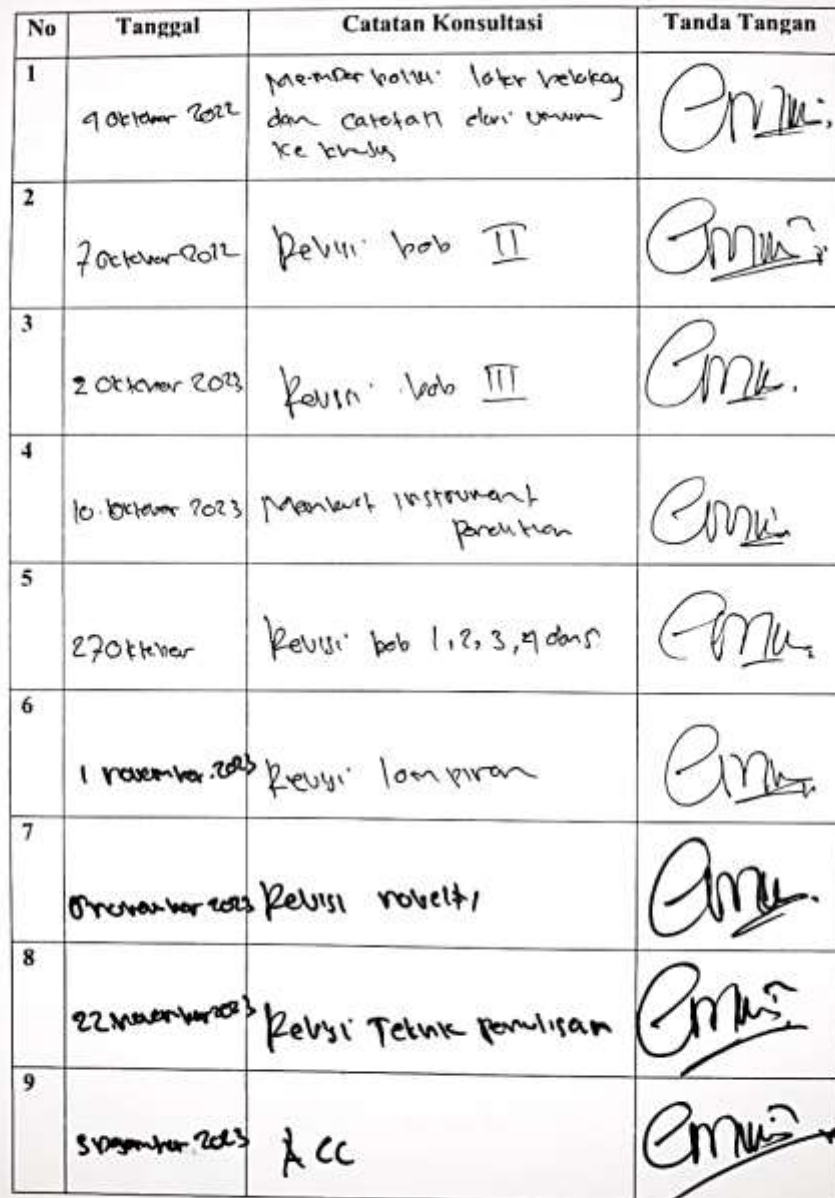 No Tanggal Catatan Konsultasi Tanda Tangan
1
Memperbaiki latar belakang
4 Oktober 2022 dan catatan dari umum
ke khusus
2
7 Oktober 2022 Revisi bab II
3
2 Oktober 2023 Revisi bab III
4
10 Oktober 2023 Membuat instrument
penelitian
5
27 Oktober Revisi bab 1, 2, 3, 4 dan 5
6
1 november 2023 Revisi lampiran
7
november 2023 Revisi novelty
8
22 november 2023 Revisi Teknik penulisan
9
Desember 2023 ACC